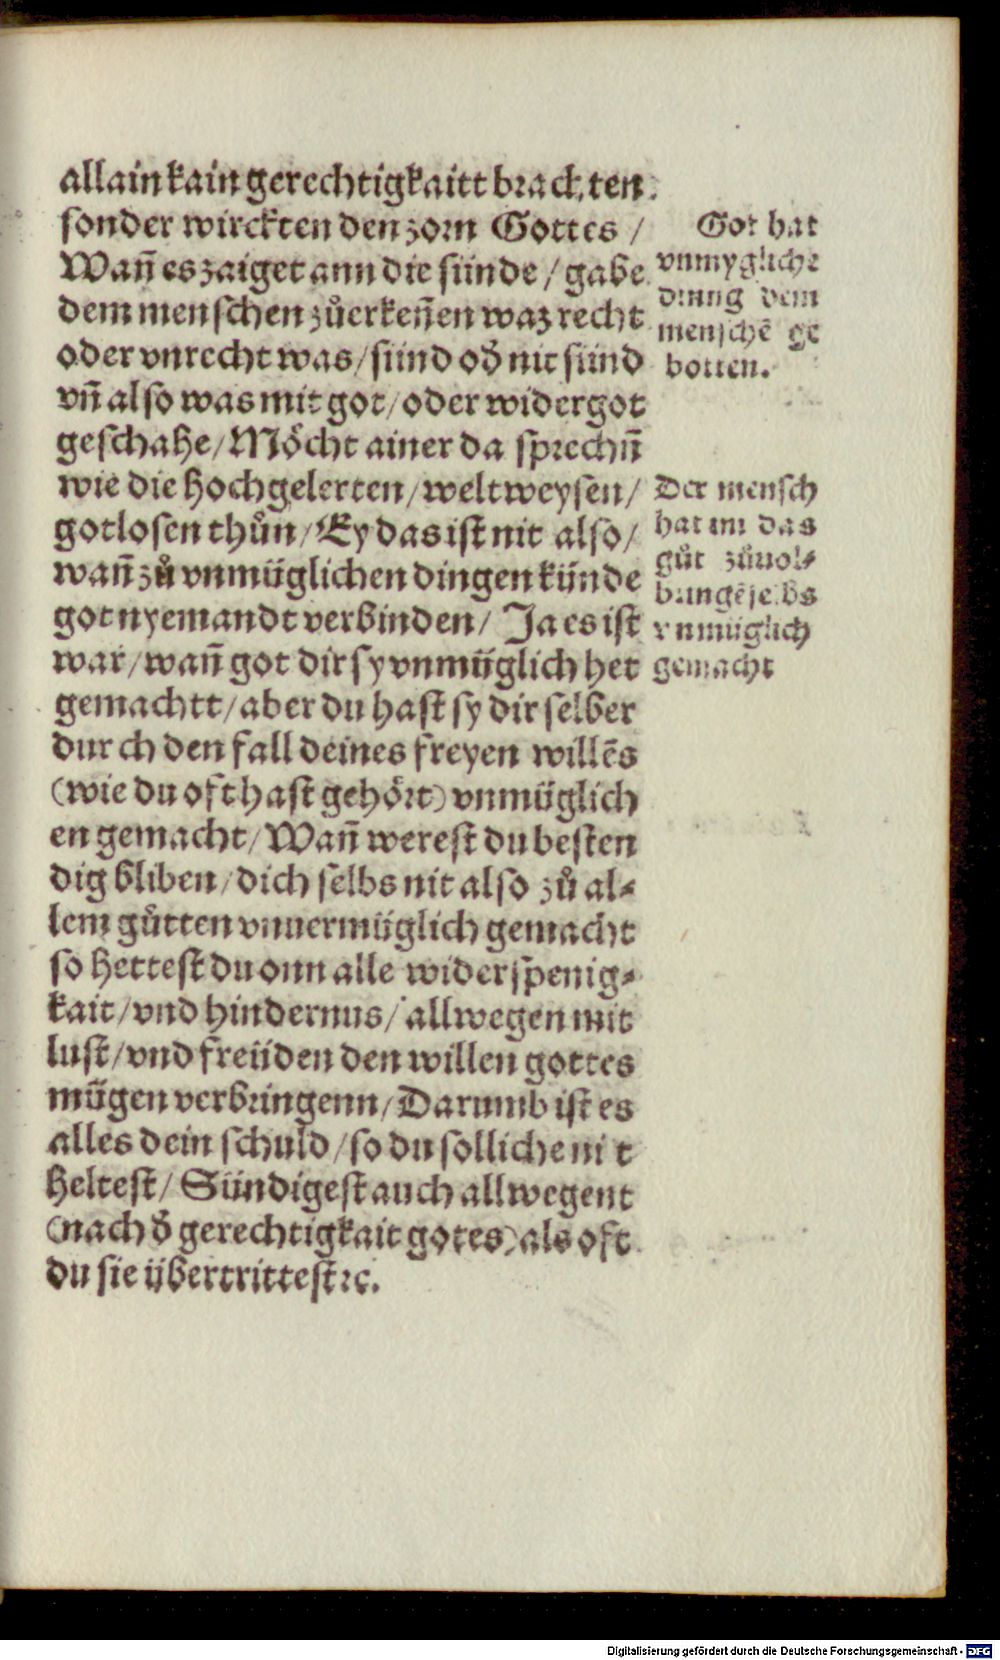 allain kain gerechtigkaitt brachten.
sonder wirckten den zorn Gottes /
Wañ es zaiget ann die sünde / gabe
dem menschen zůerkeñen waz recht
oder vnrecht was / sünd oð nit sünd
vñ also was mit got / oder wider got
geschahe / Möcht ainer da sprechñ
wie die hochgelerten / weltweysen /
gotlosen thůn / Ey das ist nit also /
wañ zů vnmüglichen dingen künde
got nyemandt verbinden / Ja es ist
war / wañ got dir sy vnmüglich het
gemachtt / aber du hast sy dir selber
durch den fall deines freyen willẽs
(wie du oft hast gehört) vnmüglich
en gemacht / Wañ werest du besten
dig bliben / dich selbs nit also zů al⸗
lem gůtten vnuermüglich gemacht
so hettest du onn alle widerspenig⸗
kait / vnd hindernus / allwegen mit
lust / vnd freüden den willen gottes
mügen verbringenn / Darumb ist es
alles dein schuld / so du solliche nit
heltest / Sündigest auch allwegent
(nach ð gerechtigkait gotes) als oft
du sie übertrittest ꝛc.
Got hat
vnmygliche
dinng dem
menschẽ ge
botten.
Der mensch
hat im das
gůt zůuol⸗
bringẽ selbs
vnmüglich
gemacht
Digitalisierung gefördert durch die Deutsche Forschungsgemeinschaft - DFG